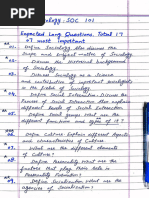 Sociology: SOC 101
Expected Long Questions, Total 17
07 most Important
01. Define Sociology also discuss the
and subject matter of Sociology.
02. Discuss the historical background
of Sociology.
03. Discuss Sociology as a science
and contribution of Muslims Sociologists
in the fields of Sociology.
04. Define Social Interaction. Discuss the
Process of Social Interaction.
05. Define Social Groups. What are the
different functions and types of it?
06. Define Culture Explain different Aspects
and characteristics of Culture.
07. What are the different elements
of Culture?
08. Define Personality what are the
factors that plays there Role in
Personality Formation?
09. Define Socialization what are the
agencies of Socialization?